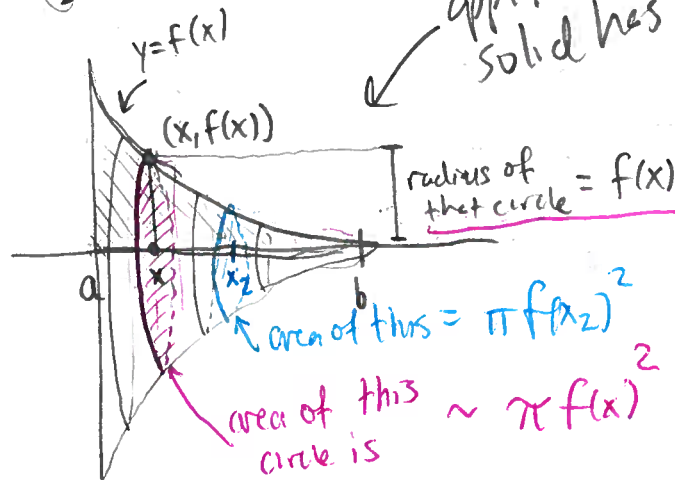 solid has
y=f(x)
(x, f(x))
radius of
that circle = f(x)
a
x
x₂
b
area of this = π f(x₂)²
area of this
circle is ~ π f(x)²